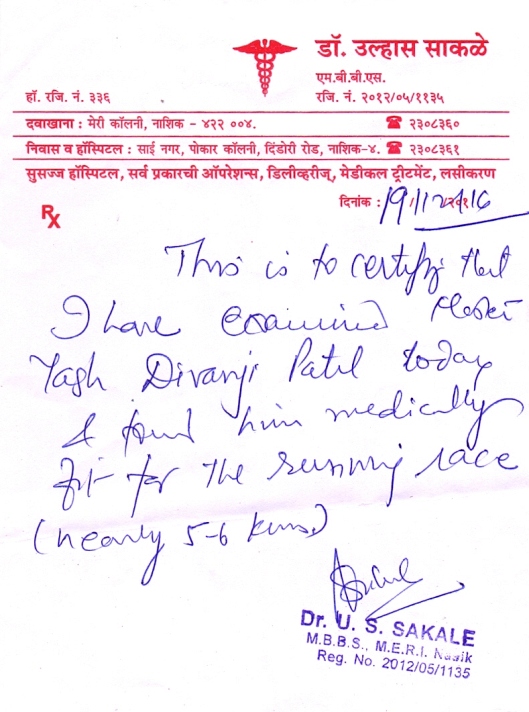 डॉ. उल्हास साकळे
एम.बी.बी.एस.
हॉ. रजि. नं. ३३६ रजि. नं. २०१२/०५/११३५
दवाखाना : मेरी कॉलनी, नाशिक - ४२२ ००४. ☎ २३०८३६०
निवास व हॉस्पिटल : साई नगर, पोकार कॉलनी, दिंडोरी रोड, नाशिक-४. ☎ २३०८३६१
सुसज्ज हॉस्पिटल, सर्व प्रकारची ऑपरेशन्स, डिलीव्हरीज्, मेडीकल ट्रीटमेंट, लसीकरण
दिनांक : 19/12/16
Rx
This is to certify that
I have examined Master
Yash Divanji Patil today
& found him medically
fit for the running race
(nearly 5-6 kms.)
Dr. U. S. SAKALE
M.B.B.S., M.E.R.I. Nasik
Reg. No. 2012/05/1135